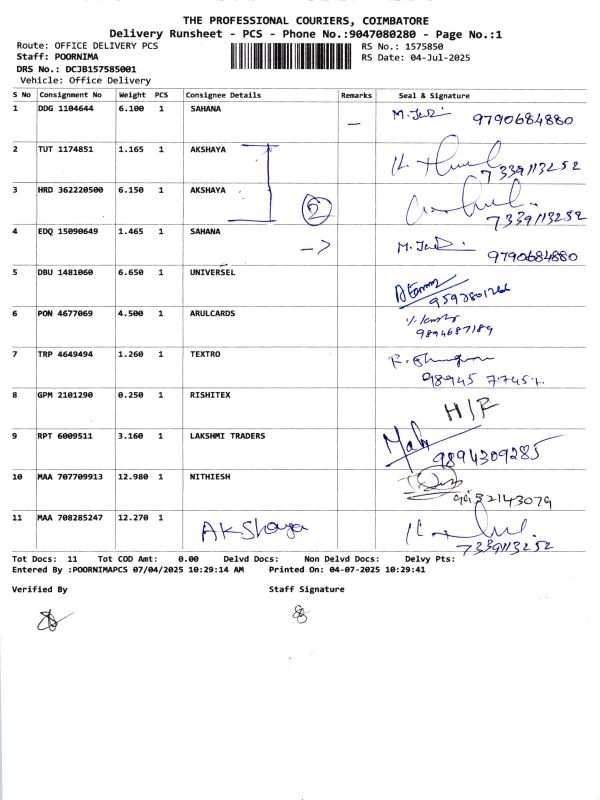 THE PROFESSIONAL COURIERS, COIMBATORE
Delivery Runsheet - PCS - Phone No.:9047080280 - Page No.:1
Route: OFFICE DELIVERY PCS RS No.: 1575850
Staff: POORNIMA RS Date: 04-Jul-2025
DRS No.: DCJB157585001
Vehicle: Office Delivery
S No Consignment No Weight PCS Consignee Details Remarks Seal & Signature
1 DDG 1104644 6.100 1 SAHANA — 9790684880
2 TUT 1174851 1.165 1 AKSHAYA 7339113252
3 HRD 362220500 6.150 1 AKSHAYA 2 7339113252
4 EDQ 15090649 1.465 1 SAHANA -> 9790684880
5 DBU 1481060 6.650 1 UNIVERSEL
6 PON 4677069 4.500 1 ARULCARDS 9894687189
7 TRP 4649494 1.260 1 TEXTRO
8 GPM 2101290 0.250 1 RISHITEX
9 RPT 6009511 3.160 1 LAKSHMI TRADERS 9894309285
10 MAA 707709913 12.980 1 NITHIESH
11 MAA 708285247 12.270 1 AKShaya 7339113252
Tot Docs: 11 Tot COD Amt: 0.00 Delvd Docs: Non Delvd Docs: Delvy Pts:
Entered By :POORNIMAPCS 07/04/2025 10:29:14 AM Printed On: 04-07-2025 10:29:41
Verified By Staff Signature